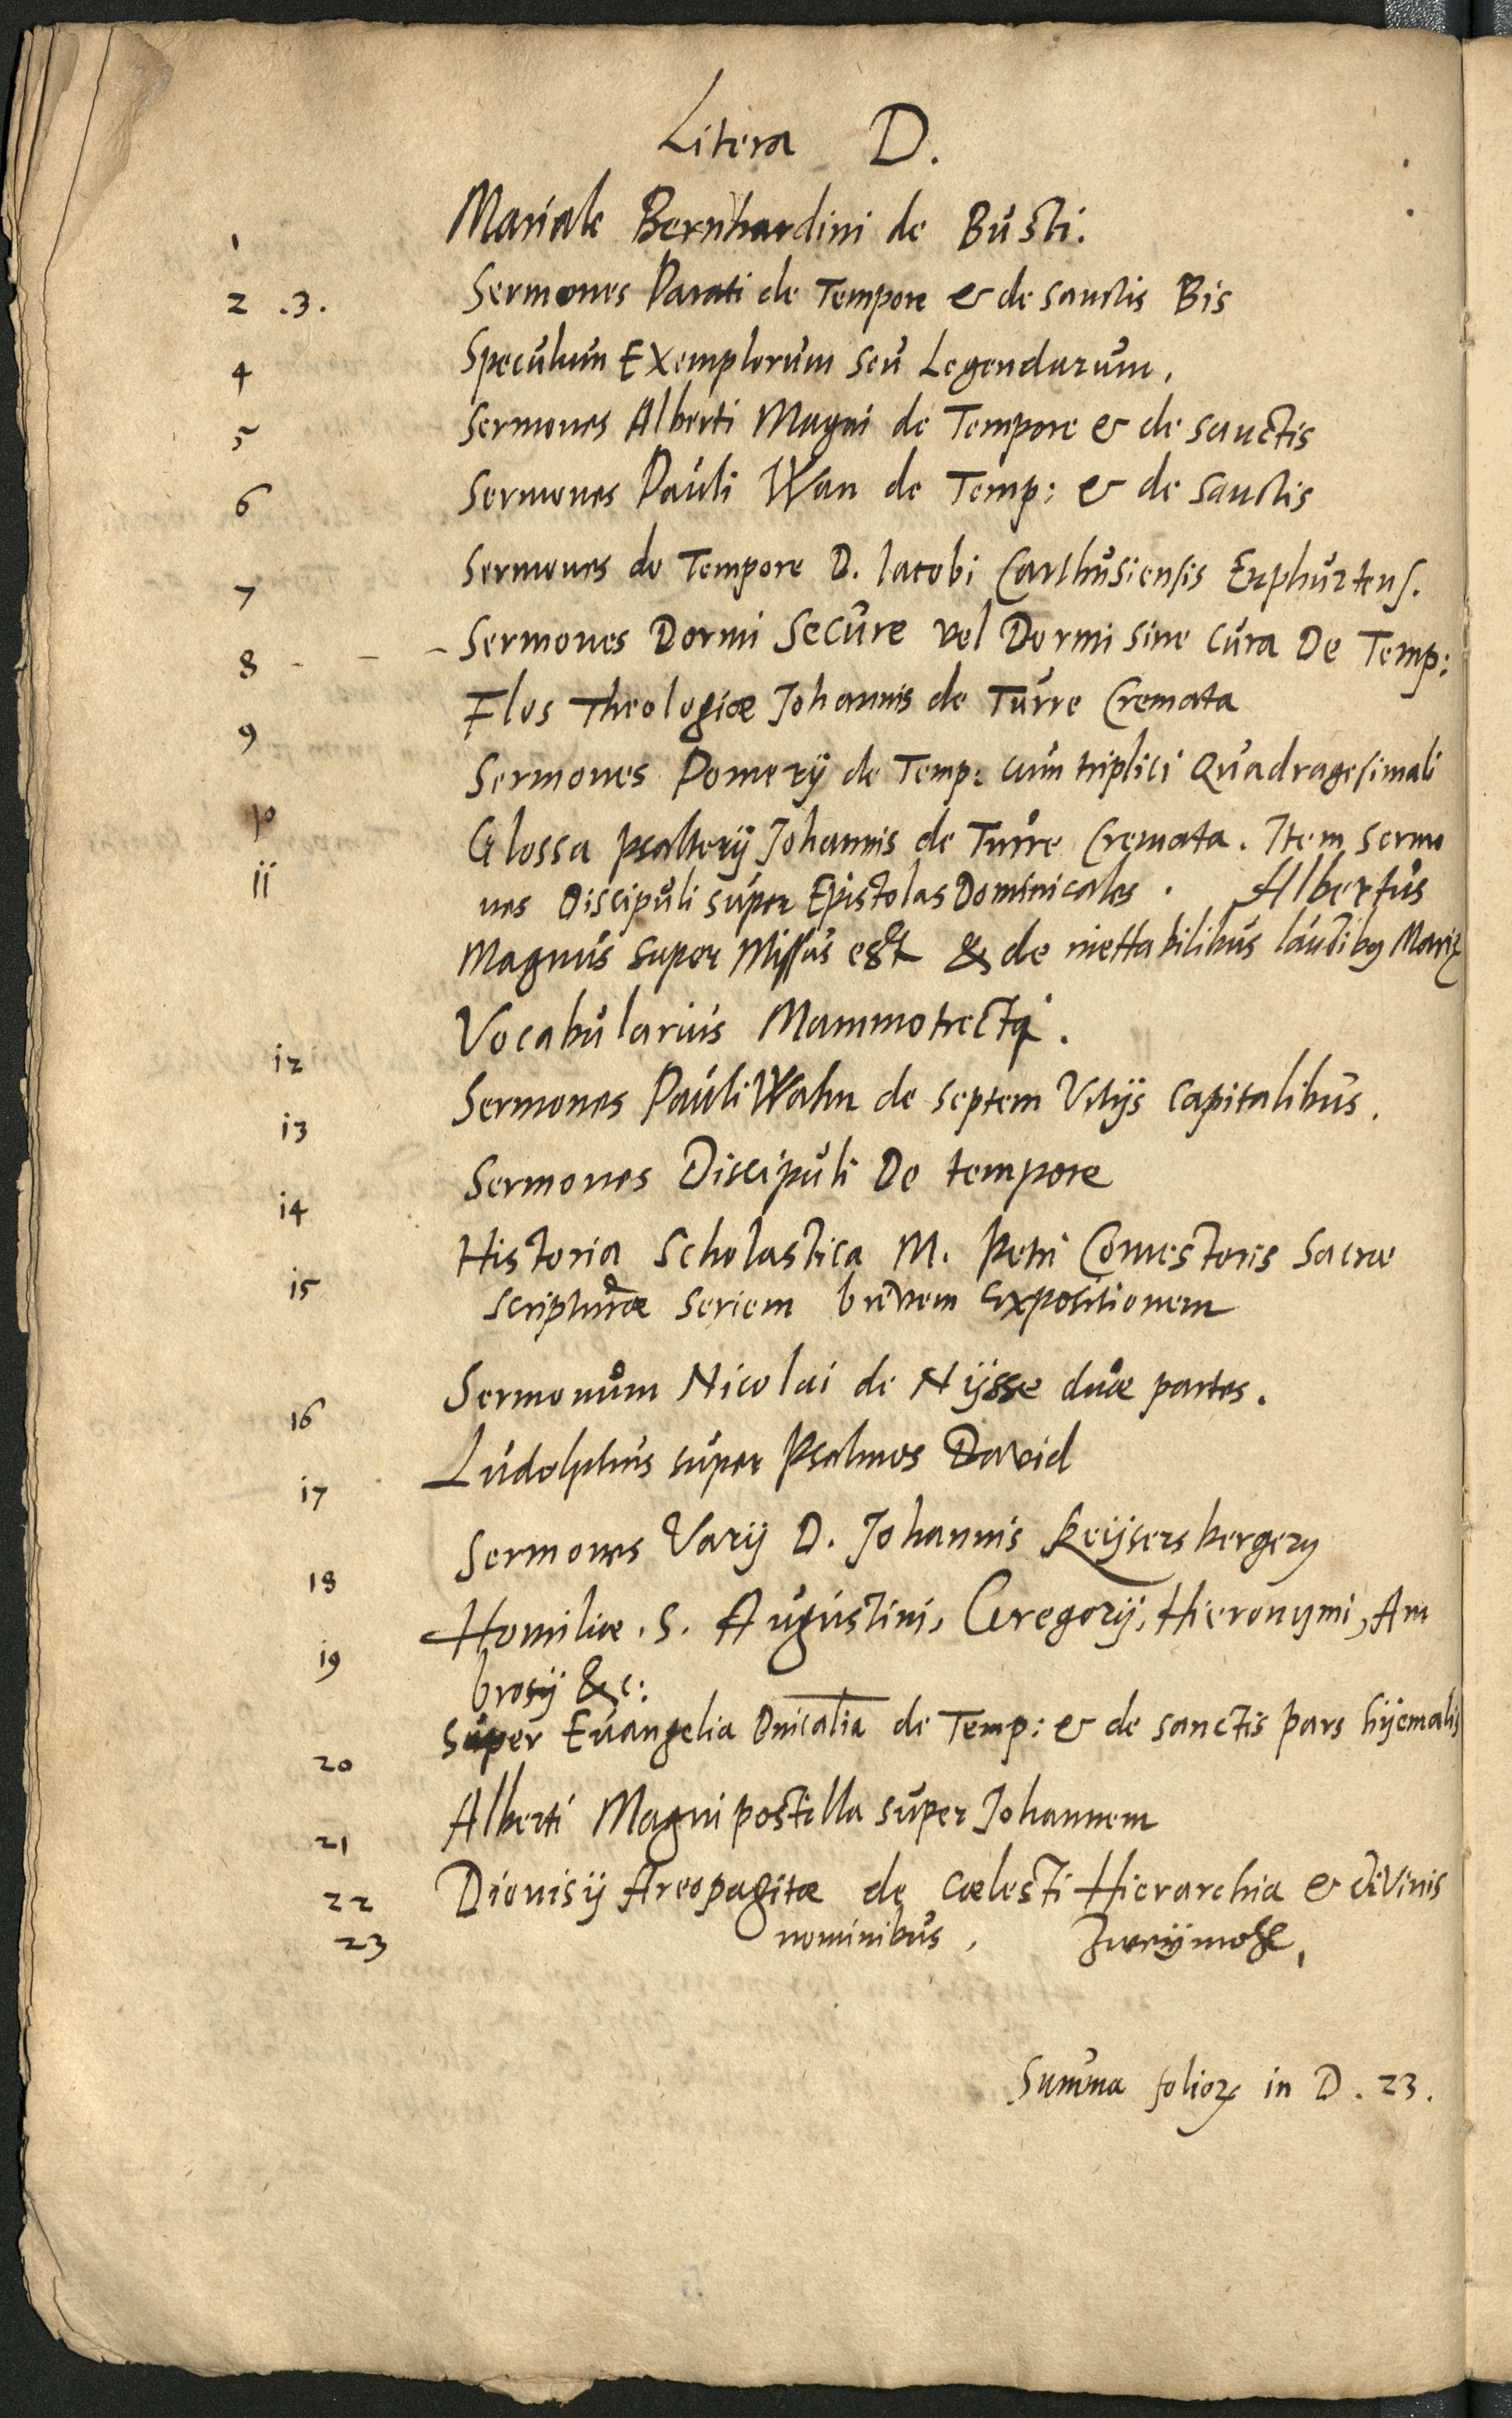 Litera D.
1 Mariale Bernhardini de Busti.
2 .3. Sermones Parati de Tempore & de sanctis Bis
4 Speculum Exemplorum seu Legendarum.
5 Sermones Alberti Magni de Tempore & de sanctis
6 Sermones Pauli Wan de Temp: & de sanctis
7 Sermones de Tempore D. Iacobi Carthusiensis Erphurtens.
8 - - - Sermones Dormi Secure vel Dormi sine cura De Temp:
9 Flos Theologiæ Johannis de Turre Cremata
10 Sermones Pomerij de Temp: cum triplici Quadragesimali
11 Glossa psalterij Johannis de Turre Cremata. Item sermo
nes Discipuli super Epistolas Dominicales. Albertus
Magnus super Missus est & de laudibus Mariæ
12 Vocabularius Mammotrecti.
13 Sermones Pauli Wahn de septem Vitijs capitalibus.
14 Sermones Discipuli De tempore
15 Historia Scholastica M. Petri Comestoris Sacræ
scripturæ seriem brevem expositionem
16 Sermonum Nicolai de Nijsse duæ partes.
17 Ludolphus super Psalmos David
18 Sermones Varij D. Johannis Keijsersbergery
19 Homiliæ. S. Augustini, Gregorij, Hieronymi, Am
brosij &c:
20 Super Euangelia Dnicalia de Temp: & de sanctis pars hijemalis
21 Alberti Magni postilla super Johannem
22 Dionisij Areopagitæ de cælesti Hierarchia & divinis
23 nominibus,
Summa folior in D. 23.